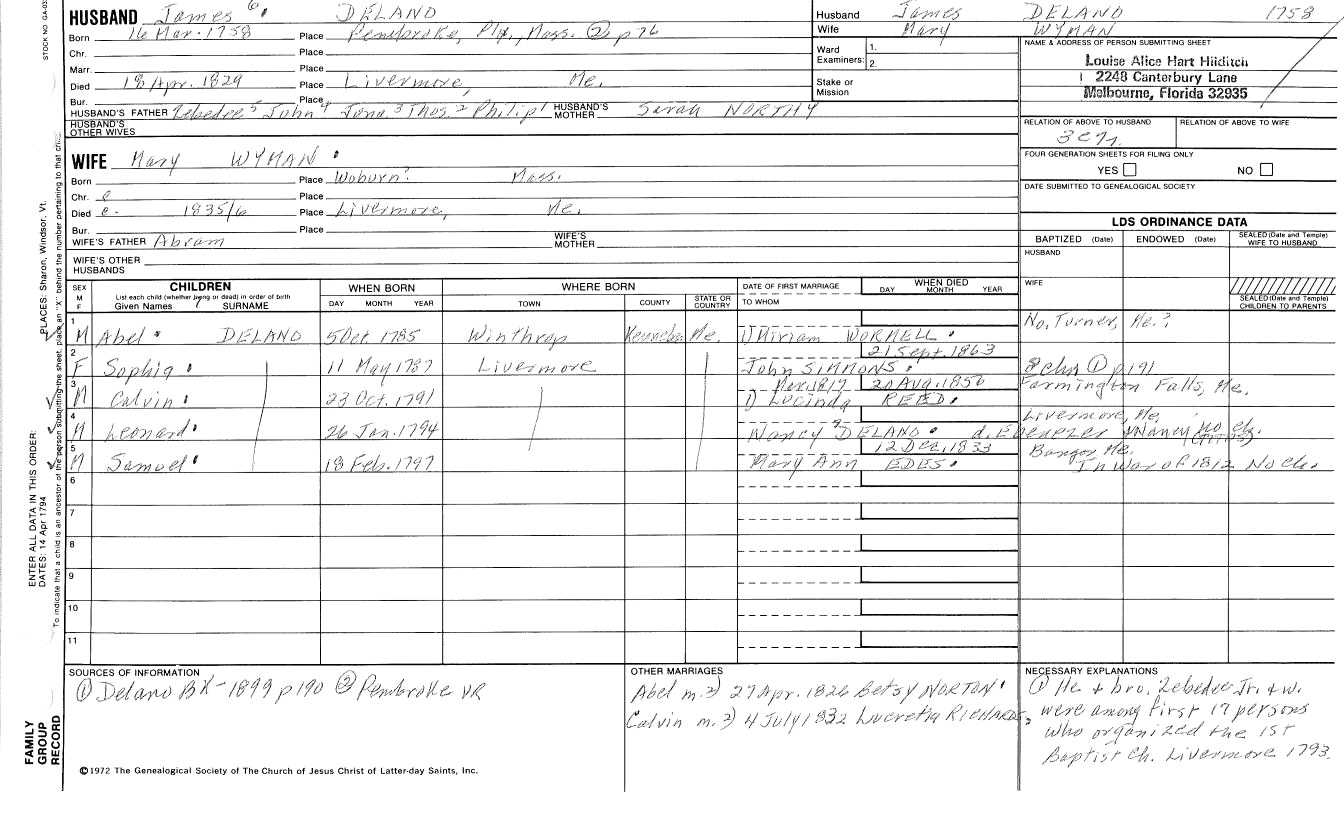 STOCK NO GA-03
HUSBAND James 6 DELANO
Born 16 Mar. 1758 Place Pembroke, Ply., Mass. ② p 76
Chr. Place
Marr. Place
Died 18 Apr. 1829 Place Livermore, Me.
Bur. Place
HUSBAND'S FATHER Zebedee 5 John 4 Jona. 3 Thos. 2 Philip 1 HUSBAND'S MOTHER Sarah NORTHY
HUSBAND'S OTHER WIVES
WIFE Mary WYMAN
Born Place Woburn? Mass.
Chr. c Place
Died c. 1835/6 Place Livermore, Me.
Bur. Place
WIFE'S FATHER Abram WIFE'S MOTHER
WIFE'S OTHER HUSBANDS
Husband James DELANO 1758
Wife Mary WYMAN
Ward Examiners: 1.
2.
Stake or Mission
NAME & ADDRESS OF PERSON SUBMITTING SHEET
Louise Alice Hart Hilditch
2248 Canterbury Lane
Melbourne, Florida 32935
RELATION OF ABOVE TO HUSBAND RELATION OF ABOVE TO WIFE
FOUR GENERATION SHEETS FOR FILING ONLY
YES NO
DATE SUBMITTED TO GENEALOGICAL SOCIETY
LDS ORDINANCE DATA
BAPTIZED (Date) ENDOWED (Date) SEALED (Date and Temple) WIFE TO HUSBAND
HUSBAND
WIFE
SEALED (Date and Temple) CHILDREN TO PARENTS
SEX M F CHILDREN WHEN BORN WHERE BORN DATE OF FIRST MARRIAGE WHEN DIED
List each child (whether living or dead) in order of birth
Given Names SURNAME DAY MONTH YEAR TOWN COUNTY STATE OR COUNTRY TO WHOM DAY MONTH YEAR
1 M Abel DELANO 5 Oct. 1785 Winthrop Kennebec Me. 1) Miriam WORMELL No. Turner, Me.?
2 F Sophia 11 May 1787 Livermore John SIMMONS 21 Sept. 1863 8 chn ① p 191
3 M Calvin 23 Oct. 1791 Mar. 1817 20 Aug. 1850 1) Lucinda REED Farmington Falls, Me.
4 M Leonard 26 Jan. 1794 Nancy DELANO d. Ebenezer & Nancy no ch. Livermore, Me.
5 M Samuel 18 Feb. 1797 12 Dec. 1833 Mary Ann EDES Bangor Me. In War of 1812 No Ch.
6
7
8
9
10
11
SOURCES OF INFORMATION
① Delano BK - 1899 p 190 ② Pembroke VR
OTHER MARRIAGES
Abel m. 2) 27 Apr. 1826 Betsy NORTON
Calvin m. 2) 4 July 1832 Lucretia RICHARDS
NECESSARY EXPLANATIONS
① He + bro. Zebedee Jr. + w.
were among first 17 persons
who organized the 1st
Baptist Ch. Livermore 1793.
©1972 The Genealogical Society of The Church of Jesus Christ of Latter-day Saints, Inc.
FAMILY GROUP RECORD
ENTER ALL DATA IN THIS ORDER:
DATES: 14 Apr 1794
PLACES: Sharon, Windsor, Vt.
To indicate that a child is an ancestor of the person submitting the sheet, place an "X" behind the number pertaining to that child.